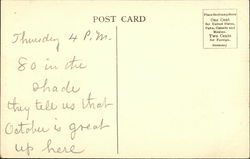 POST CARD
Thursday 4 P.M.
80 in the
shade
they tell us that
October is great
up here
Place Stamp Here
One Cent
for United States,
Cuba, Canada and
Mexico.
Two Cents
for Foreign.
Germany